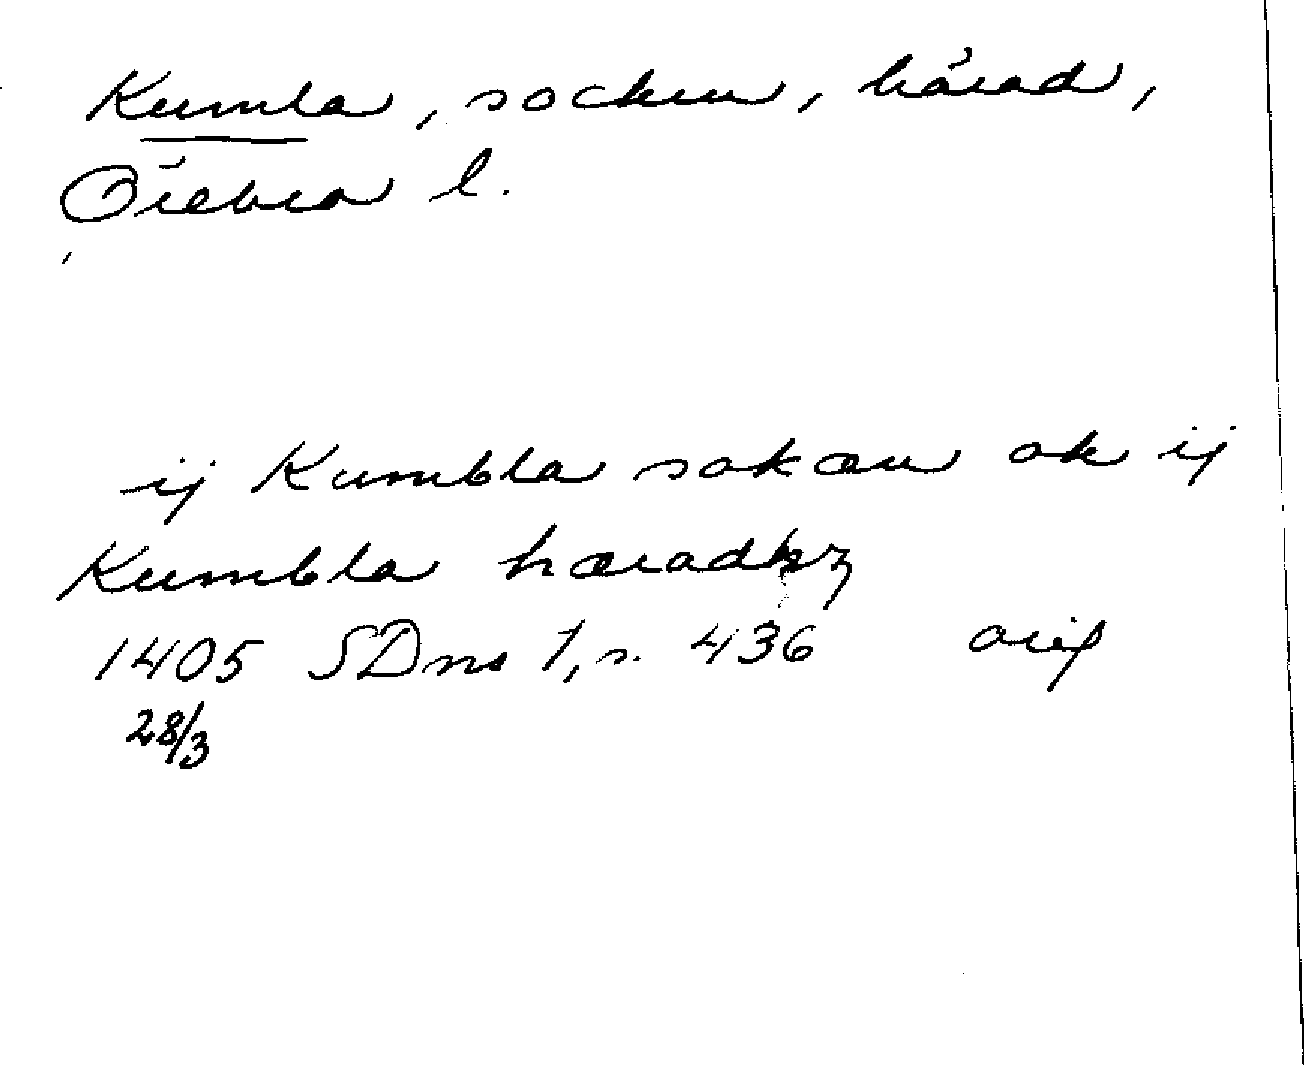 Kumla, socken, härad,
Örebro l.
ij Kumbla sokæn ok ij
Kumbla hæradhz
1405 SDns 1, s. 436 orig
28/3